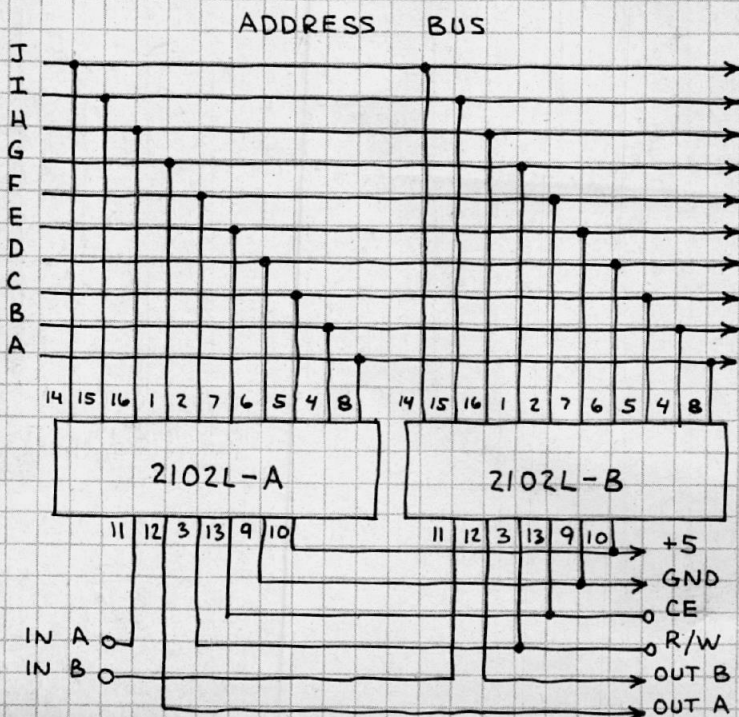 ADDRESS BUS
J
I
H
G
F
E
D
C
B
A
14 15 16 1 2 7 6 5 4 8
14 15 16 1 2 7 6 5 4 8
2102L-A
2102L-B
11 12 3 13 9 10
11 12 3 13 9 10
+5
GND
CE
IN A
R/W
IN B
OUT B
OUT A